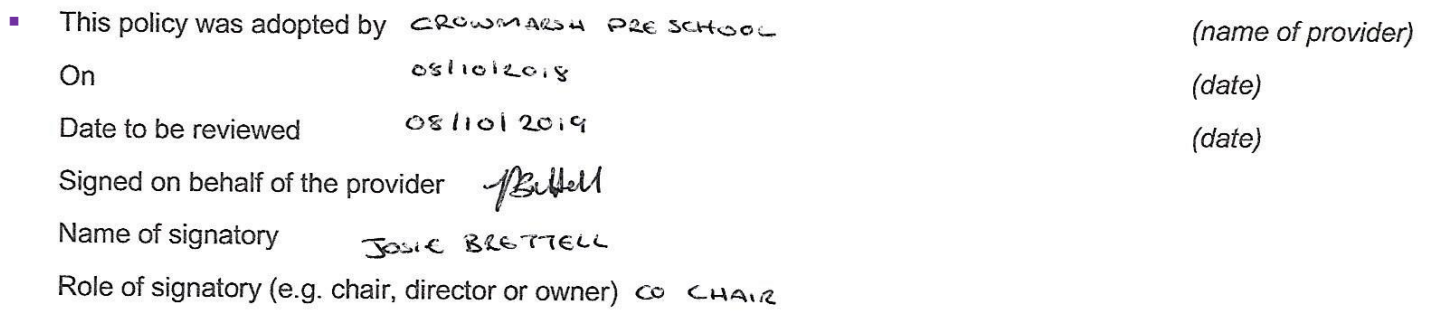 ▪ This policy was adopted by CROWMARSH PRE SCHOOL (name of provider)
On 08/10/2018 (date)
Date to be reviewed 08/10/2019 (date)
Signed on behalf of the provider JBrettell
Name of signatory JOSIE BRETTELL
Role of signatory (e.g. chair, director or owner) CO CHAIR